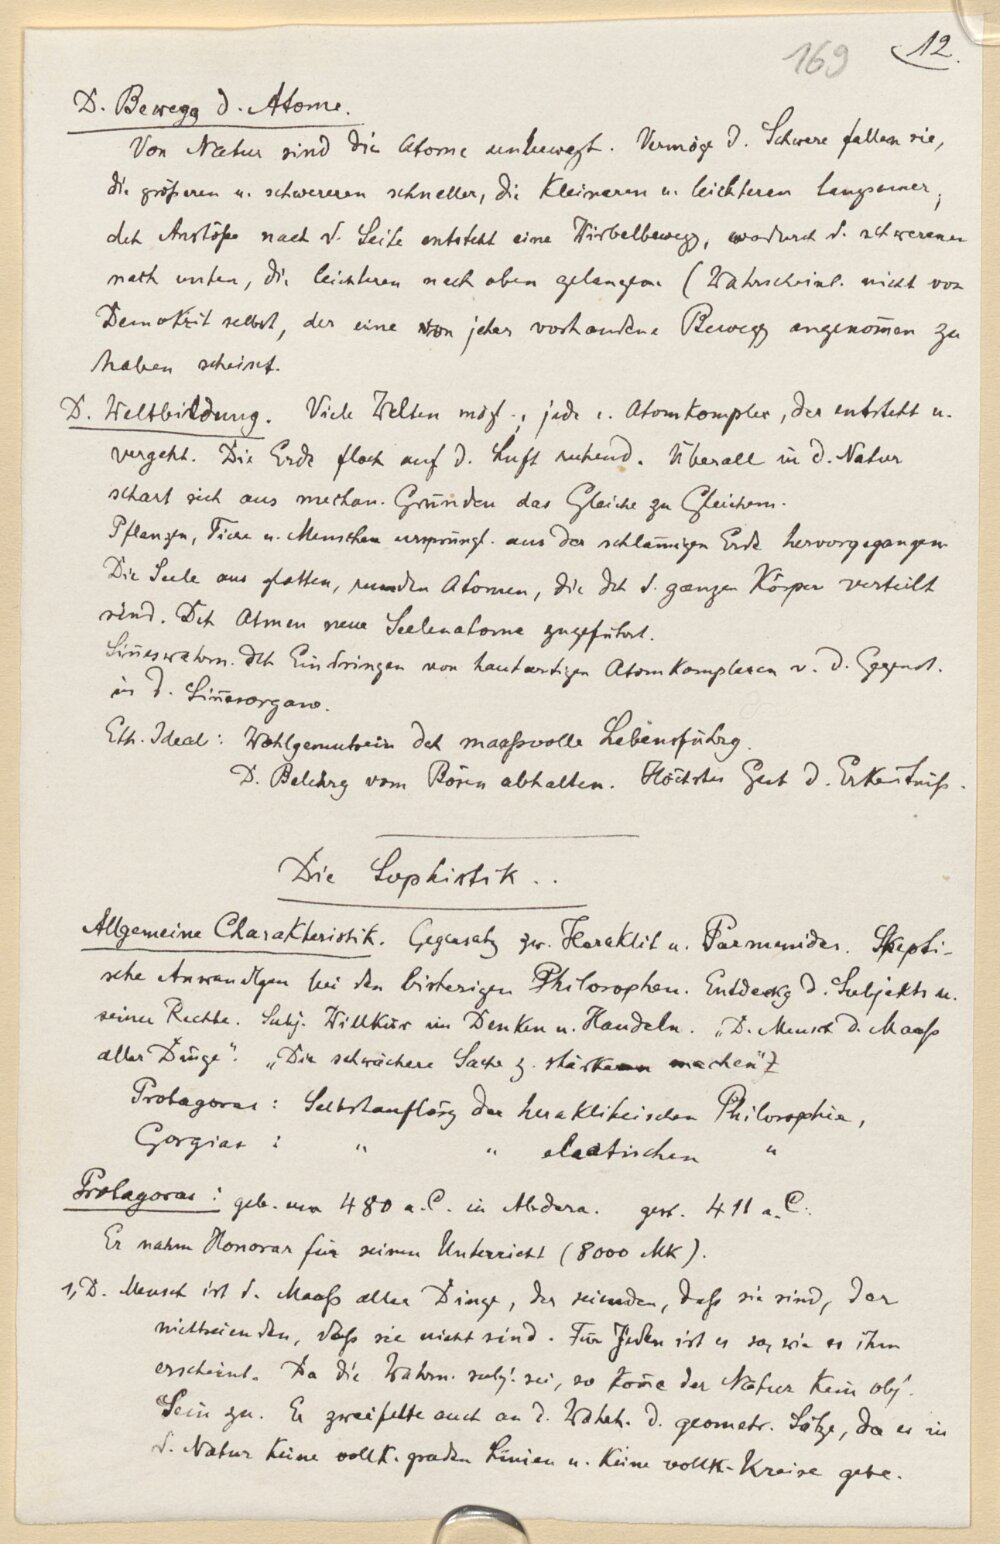 169 12.
D. Bewegg d. Atome.
Von Natur sind die Atome unbewegt. Vermöge d. Schwere fallen sie,
die größeren u. schwereren schneller, die kleineren u. leichteren langsamer;
dch Anstöße nach d. Seite entsteht eine Wirbelbewegg, wodurch d. schwereren
nach unten, die leichteren nach oben gelangen (Wahrscheinl. nicht von
Demokrit selbst, der eine von jeher vorhandene Bewegg angenom̄en zu
haben scheint.
D. Weltbildung. Viele Welten mögl.; jede e. Atomkomplex, der entsteht u.
vergeht. Die Erde flach auf d. Luft ruhend. Überall in d. Natur
schart sich aus mechan. Gründen das Gleiche zu Gleichem.
Pflanzen, Tiere u. Menschen ursprüngl. aus der schlam̄igen Erde hervorgegangen
Die Seele aus glatten, runden Atomen, die dch d. ganzen Körper verteilt
sind. Dch Atmen neue Seelenatome zugeführt.
Sin̄eswahrn. dch Eindringen von hautartigen Atomkomplexen v. d. Gegenst.
in d. Sin̄esorgane.
Eth. Ideal: Wohlgemutsein dch maaßvolle Lebensführg.
D. Belehrg vom Bösen abhalten. Höchstes Gut d. Erken̄tniß.
Die Sophistik..
Allgemeine Charakteristik. Gegensatz zw. Heraklit u. Parmenides. Skepti-
sche Anwandlgen bei den bisherigen Philosophen. Entdeckg d. Subjekts u.
seiner Rechte. Subj. Willkür im Denken u. Handeln. „D. Mensch d. Maaß
aller Dinge". „Die schwächere Sache z. stärkeren machen"
Protagoras: Selbstauflösg der heraklitischen Philosophie,
Gorgias : " " eleatischen "
Protagoras: geb. um 480 a. C. in Abdera. gest. 411 a. C.
Er nahm Honorar für seinen Unterricht (8000 Mk).
1, D. Mensch ist d. Maaß aller Dinge, der seienden, daß sie sind, der
nichtseienden, daß sie nicht sind. Für Jeden ist es so, wie es ihm
erscheint. Da die Wahrn. subj. sei, so kom̄e der Natur kein obj.
Sein zu. Er zweifelte auch an d. Wahrh. d. geometr. Sätze, da es in
d. Natur keine vollk. graden Linien u. keine vollk. Kreise gebe.